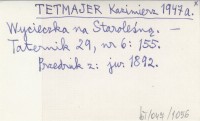 TETMAJER Kazimierz 1947 a.
Wycieczka na Staroleśną. —
Taternik 29, nr 6: 155.
Przedruk z: jw. 1892.